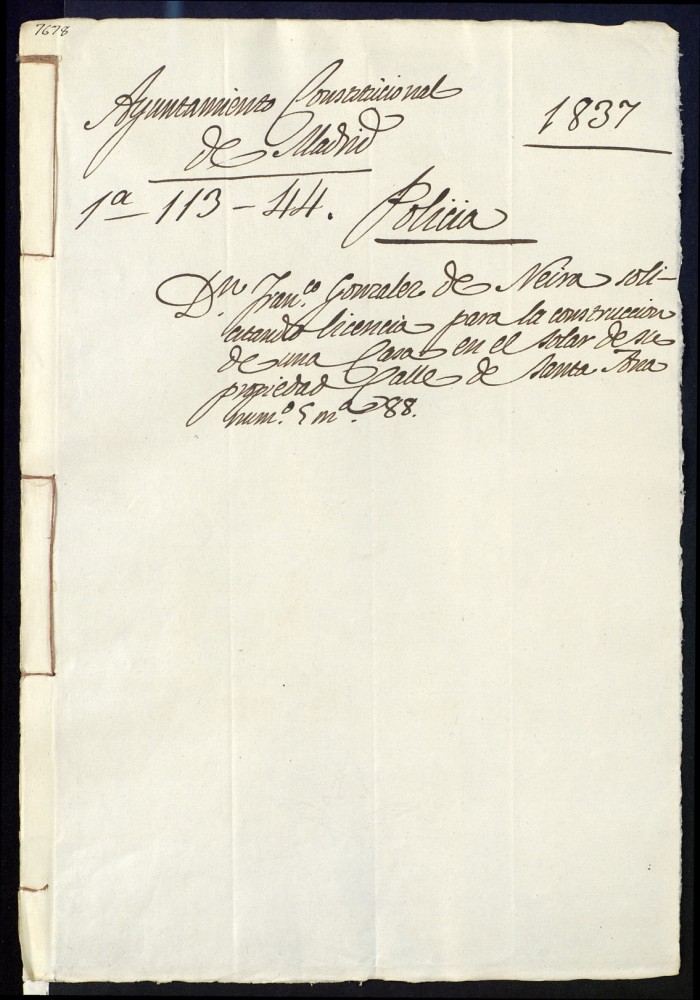 7678
Ayuntamiento Constitucional
de Madrid
1837
1a - 113 - 44.
Policia
Dn. Franco. Gonzalez de Neira soli-
citando licencia para la construccion
de una Casa en el solar de su
propiedad Calle de Santa Ana
numo. 5 ma. 88.